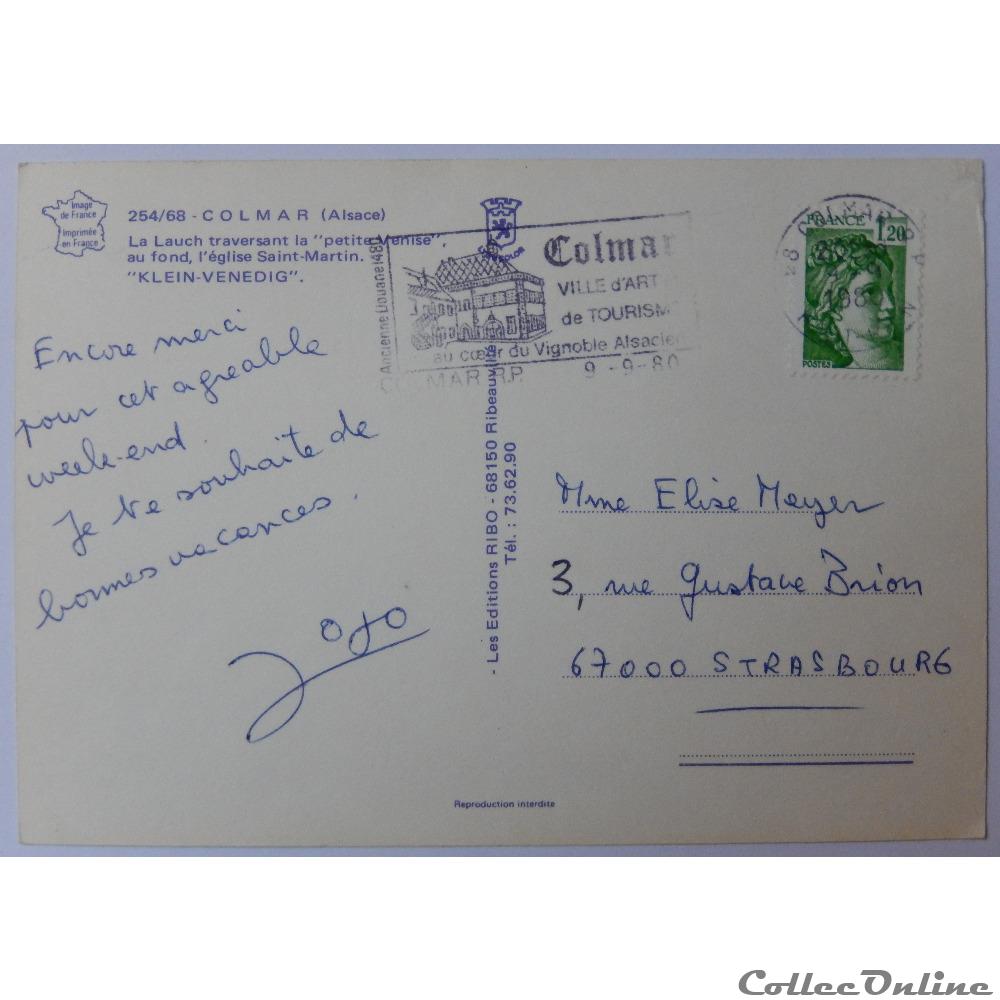 Image
de France
Imprimée
en France
254/68 - COLMAR (Alsace)
La Lauch traversant la "petite Venise",
au fond, l'église Saint-Martin.
"KLEIN-VENEDIG".
Encore merci
pour cet agreable
week-end.
Je te souhaite de
bonnes vacances.
Jojo
Ancienne Douane 1480
Colmar
VILLE d'ART
de TOURISM
au cœur du Vignoble Alsacien
COLMAR R.P. 9-9-80
COLMAR R.P.
FRANCE 1,20
POSTES
- Les Editions RIBO - 68150 Ribeauvillé -
Tél. : 73.62.90
Mme Elise Meyer
3, rue Gustave Brion
67000 STRASBOURG
Reproduction interdite
CollecOnline